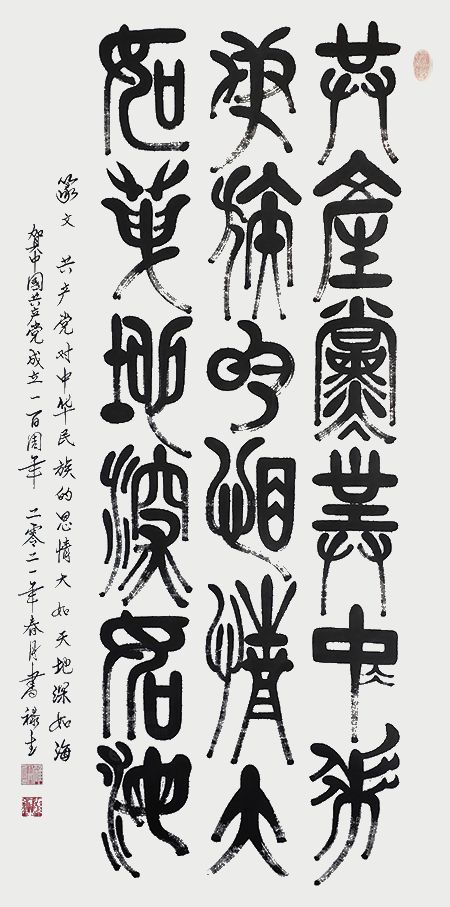 共產黨對中華
民族的恩情大
如天地深如海
篆文 共产党对中华民族的恩情大如天地深如海
賀中國共产党成立一百周年 二零二一年春月書禄